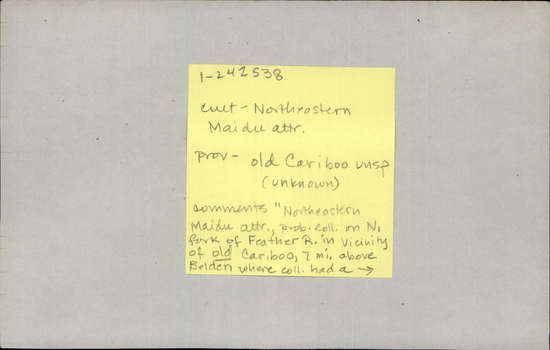 1-242538
cult - Northeastern
Maidu attr.
prov - old Cariboo unsp
(unknown)
comments "Northeastern
Maidu attr., prob. coll. on N.
fork of Feather R. in vicinity
of old Cariboo, 7 mi. above
Belden where coll. had a →